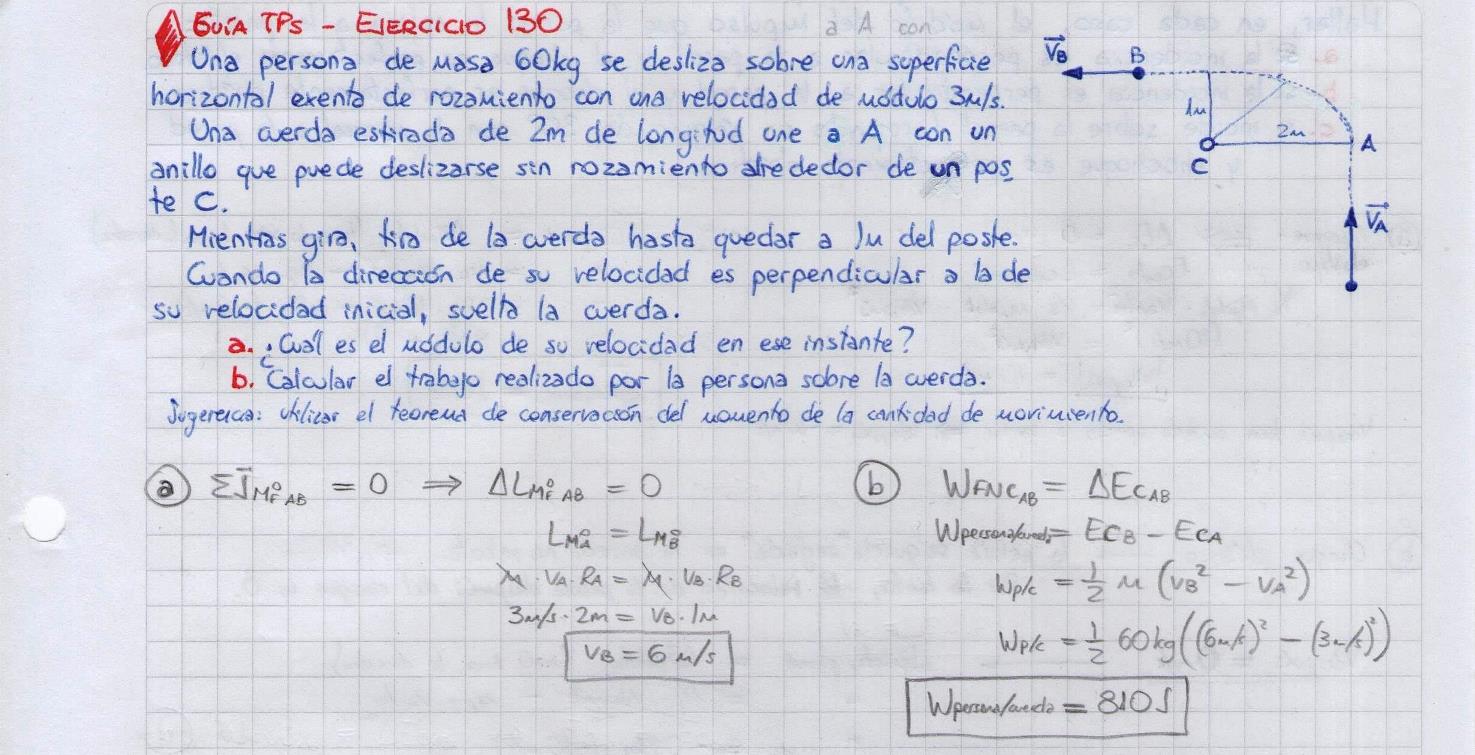 GUÍA TPs - EJERCICIO 130
Una persona de masa 60kg se desliza sobre una superficie
horizontal exenta de rozamiento con una velocidad de módulo 3m/s.
Una cuerda estirada de 2m de longitud une a A con un
anillo que puede deslizarse sin rozamiento alrededor de un pos
te C.
Mientras gira, tira de la cuerda hasta quedar a 1m del poste.
Cuando la dirección de su velocidad es perpendicular a la de
su velocidad inicial, suelta la cuerda.
a. ¿Cuál es el módulo de su velocidad en ese instante?
b. Calcular el trabajo realizado por la persona sobre la cuerda.
Sugerencia: Utilizar el teorema de conservación del momento de la cantidad de movimiento.
V⃗B B
1m
2m A
C
V⃗A
a ΣJ⃗MFº AB = 0 ⇒ ΔLMFº AB = 0
LMAº = LMBº
M · VA · RA = M · VB · RB
3m/s · 2m = VB · 1m
VB = 6 m/s
b WFNCAB = ΔECAB
Wpersona/cuerda = ECB - ECA
Wp/c = 1/2 M (VB² - VA²)
Wp/c = 1/2 60kg ((6m/s)² - (3m/s)²)
Wpersona/cuerda = 810J